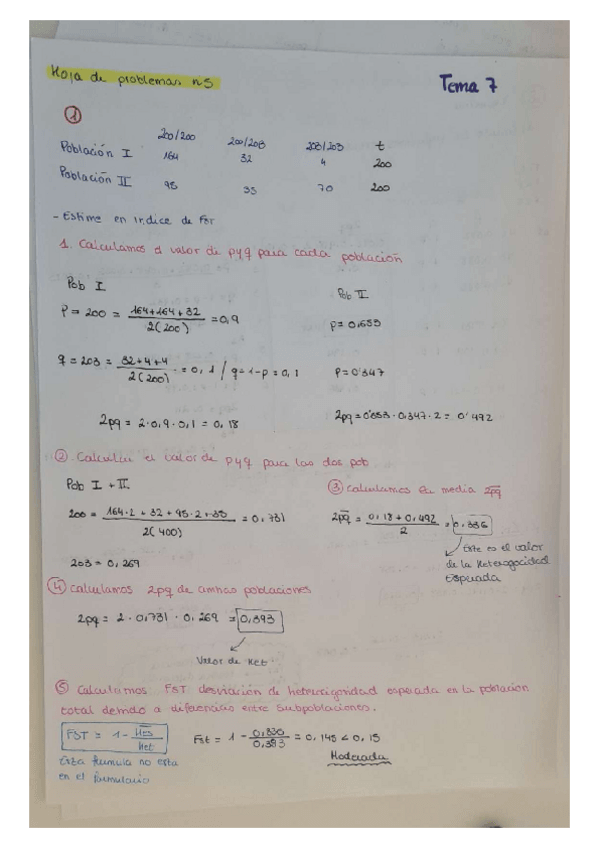 Hoja de problemas nº5
Tema 7
①
200/200 200/203 203/203 t
Población I 164 32 4 200
Población II 95 35 70 200
- Estime en indice de Fst
1. Calculamos el valor de p y q para cada población
Pob I
Pob II
P = 200 = 164+164+32 / 2(200) = 0,9
p = 0,653
q = 203 = 32+4+4 / 2(200) = 0,1 / q = 1-p = 0,1
p = 0'347
2pq = 2·0,9·0,1 = 0,18
2pq = 0'653·0,347·2 = 0'492
② Calcular el valor de p y q para las dos pob.
Pob I + II
③ Calculamos la media 2pq
200 = 164·2 + 32 + 95·2+35 / 2(400) = 0,731
2pq = 0,18 + 0,492 / 2 = 0,336
203 = 0,269
Este es el valor
de la Heterogocidad
Esperada
④ Calculamos 2pq de amnas poblaciones
2pq = 2 · 0,731 · 0,269 = 0,393
Valor de Het
⑤ Calculamos FST desviación de heterocigosidad esperada en la población
total debido a diferencias entre subpoblaciones.
FST = 1 - Hes / Het
Fst = 1 - 0,330 / 0,393 = 0,145 < 0,15
Moderada
Esta formula no esta
en el formulario